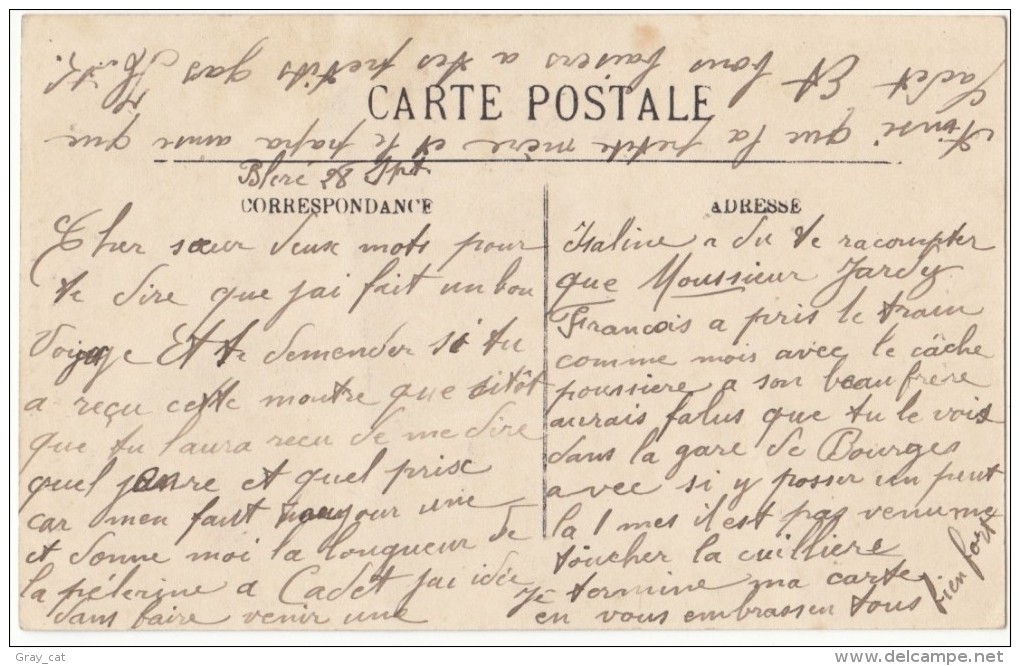 CARTE POSTALE
Blere 28 Spt
CORRESPONDANCE
Cher sœur deux mots pour
te dire que jai fait un bon
voyage Et te demender si tu
a reçu cette montre que sitôt
que tu laura recu de me dire
quel jenre et quel prise
car men faut toujour une
et donne moi la longueur de
la pélerine a Cadet jai idée
dans faire venir une
ADRESSE
Isaline a du te racompter
que Moussieur Jardy
Francois a pris le train
comme mois avec le câche
poussiere a son beau frère
aurais falus que tu le vois
dans la gare de Bourges
avec si y posser un peut
la 1 mes il est pas venu me
toucher la cuilliere
Je termine ma carte
en vous embrassen tous
bien fort
Ainsi que la petite mère et le papa ainsi que
Cadet Et bons baisers a tes petits gas
Gray_cat
delcampe.net